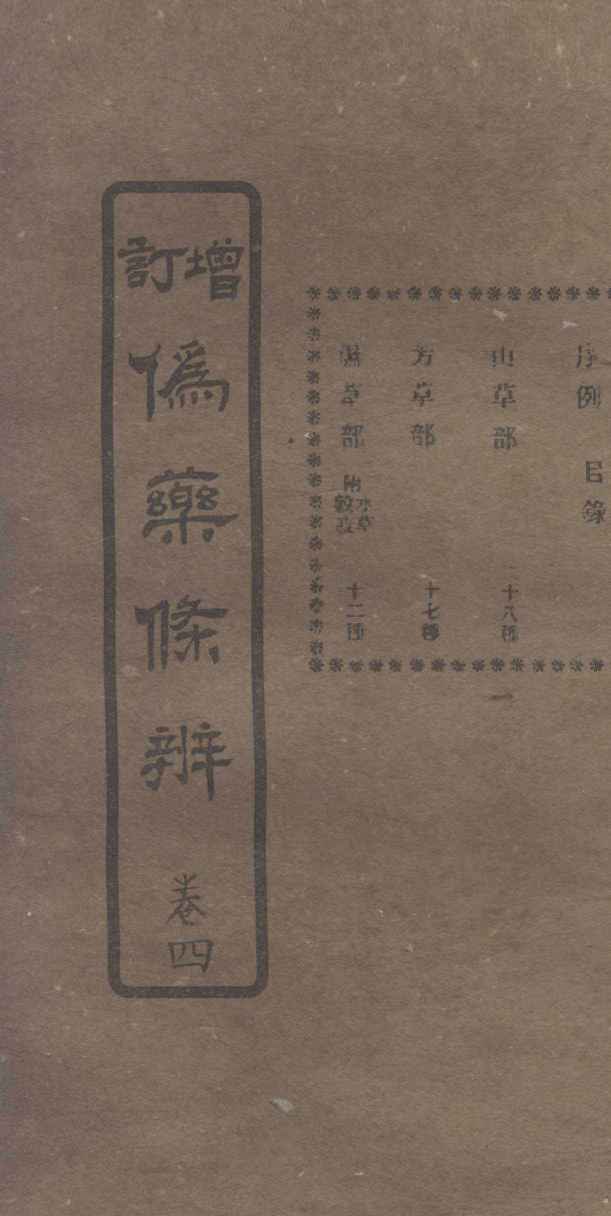 序例 目錄
山草部 二十八種
芳草部 十七種
濕草部 附水草 十二種
一
增訂偽藥條辨 卷四